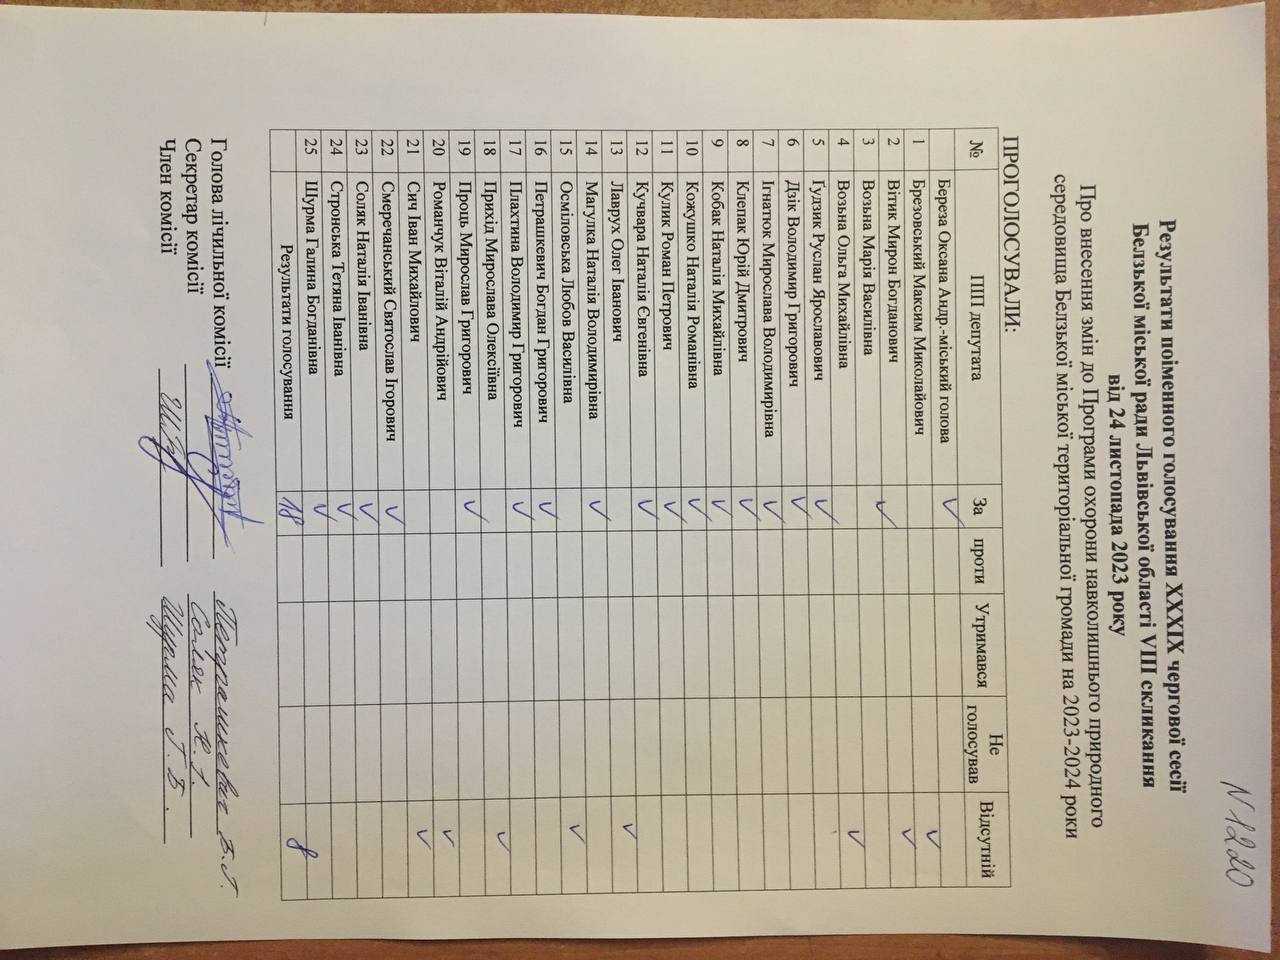 N 1220
Результати поіменного голосування XXXIX чергової сесії
Белзької міської ради Львівської області VIII скликання
від 24 листопада 2023 року
Про внесення змін до Програми охорони навколишнього природного
середовища Белзької міської територіальної громади на 2023-2024 роки
ПРОГОЛОСУВАЛИ:
№ ПІП депутата За проти Утримався Не голосував Відсутній
Береза Оксана Андр.-міський голова ✓
1 Брезовський Максим Миколайович ✓
2 Вітик Мирон Богданович ✓
3 Возьна Марія Василівна ✓
4 Возьна Ольга Михайлівна ✓
5 Ґудзик Руслан Ярославович ✓
6 Дзік Володимир Григорович ✓
7 Ігнатюк Мирослава Володимирівна ✓
8 Клепак Юрій Дмитрович ✓
9 Кобак Наталія Михайлівна ✓
10 Кожушко Наталія Романівна ✓
11 Кулик Роман Петрович ✓
12 Кучвара Наталія Євгенівна ✓
13 Лаврух Олег Іванович ✓
14 Магулка Наталія Володимирівна ✓
15 Осміловська Любов Василівна ✓
16 Петрашкевич Богдан Григорович ✓
17 Плахтина Володимир Григорович ✓
18 Прихід Мирослава Олексіївна ✓
19 Проць Мирослав Григорович ✓
20 Романчук Віталій Андрійович ✓
21 Сич Іван Михайлович ✓
22 Смеречанський Святослав Ігорович ✓
23 Соляк Наталія Іванівна ✓
24 Стронська Тетяна Іванівна ✓
25 Шурма Галина Богданівна ✓
Результати голосування 18 8
Голова лічильної комісії Петрашкевич Б.Г.
Секретар комісії Соляк Н.І.
Член комісії Шурма Г.Б.